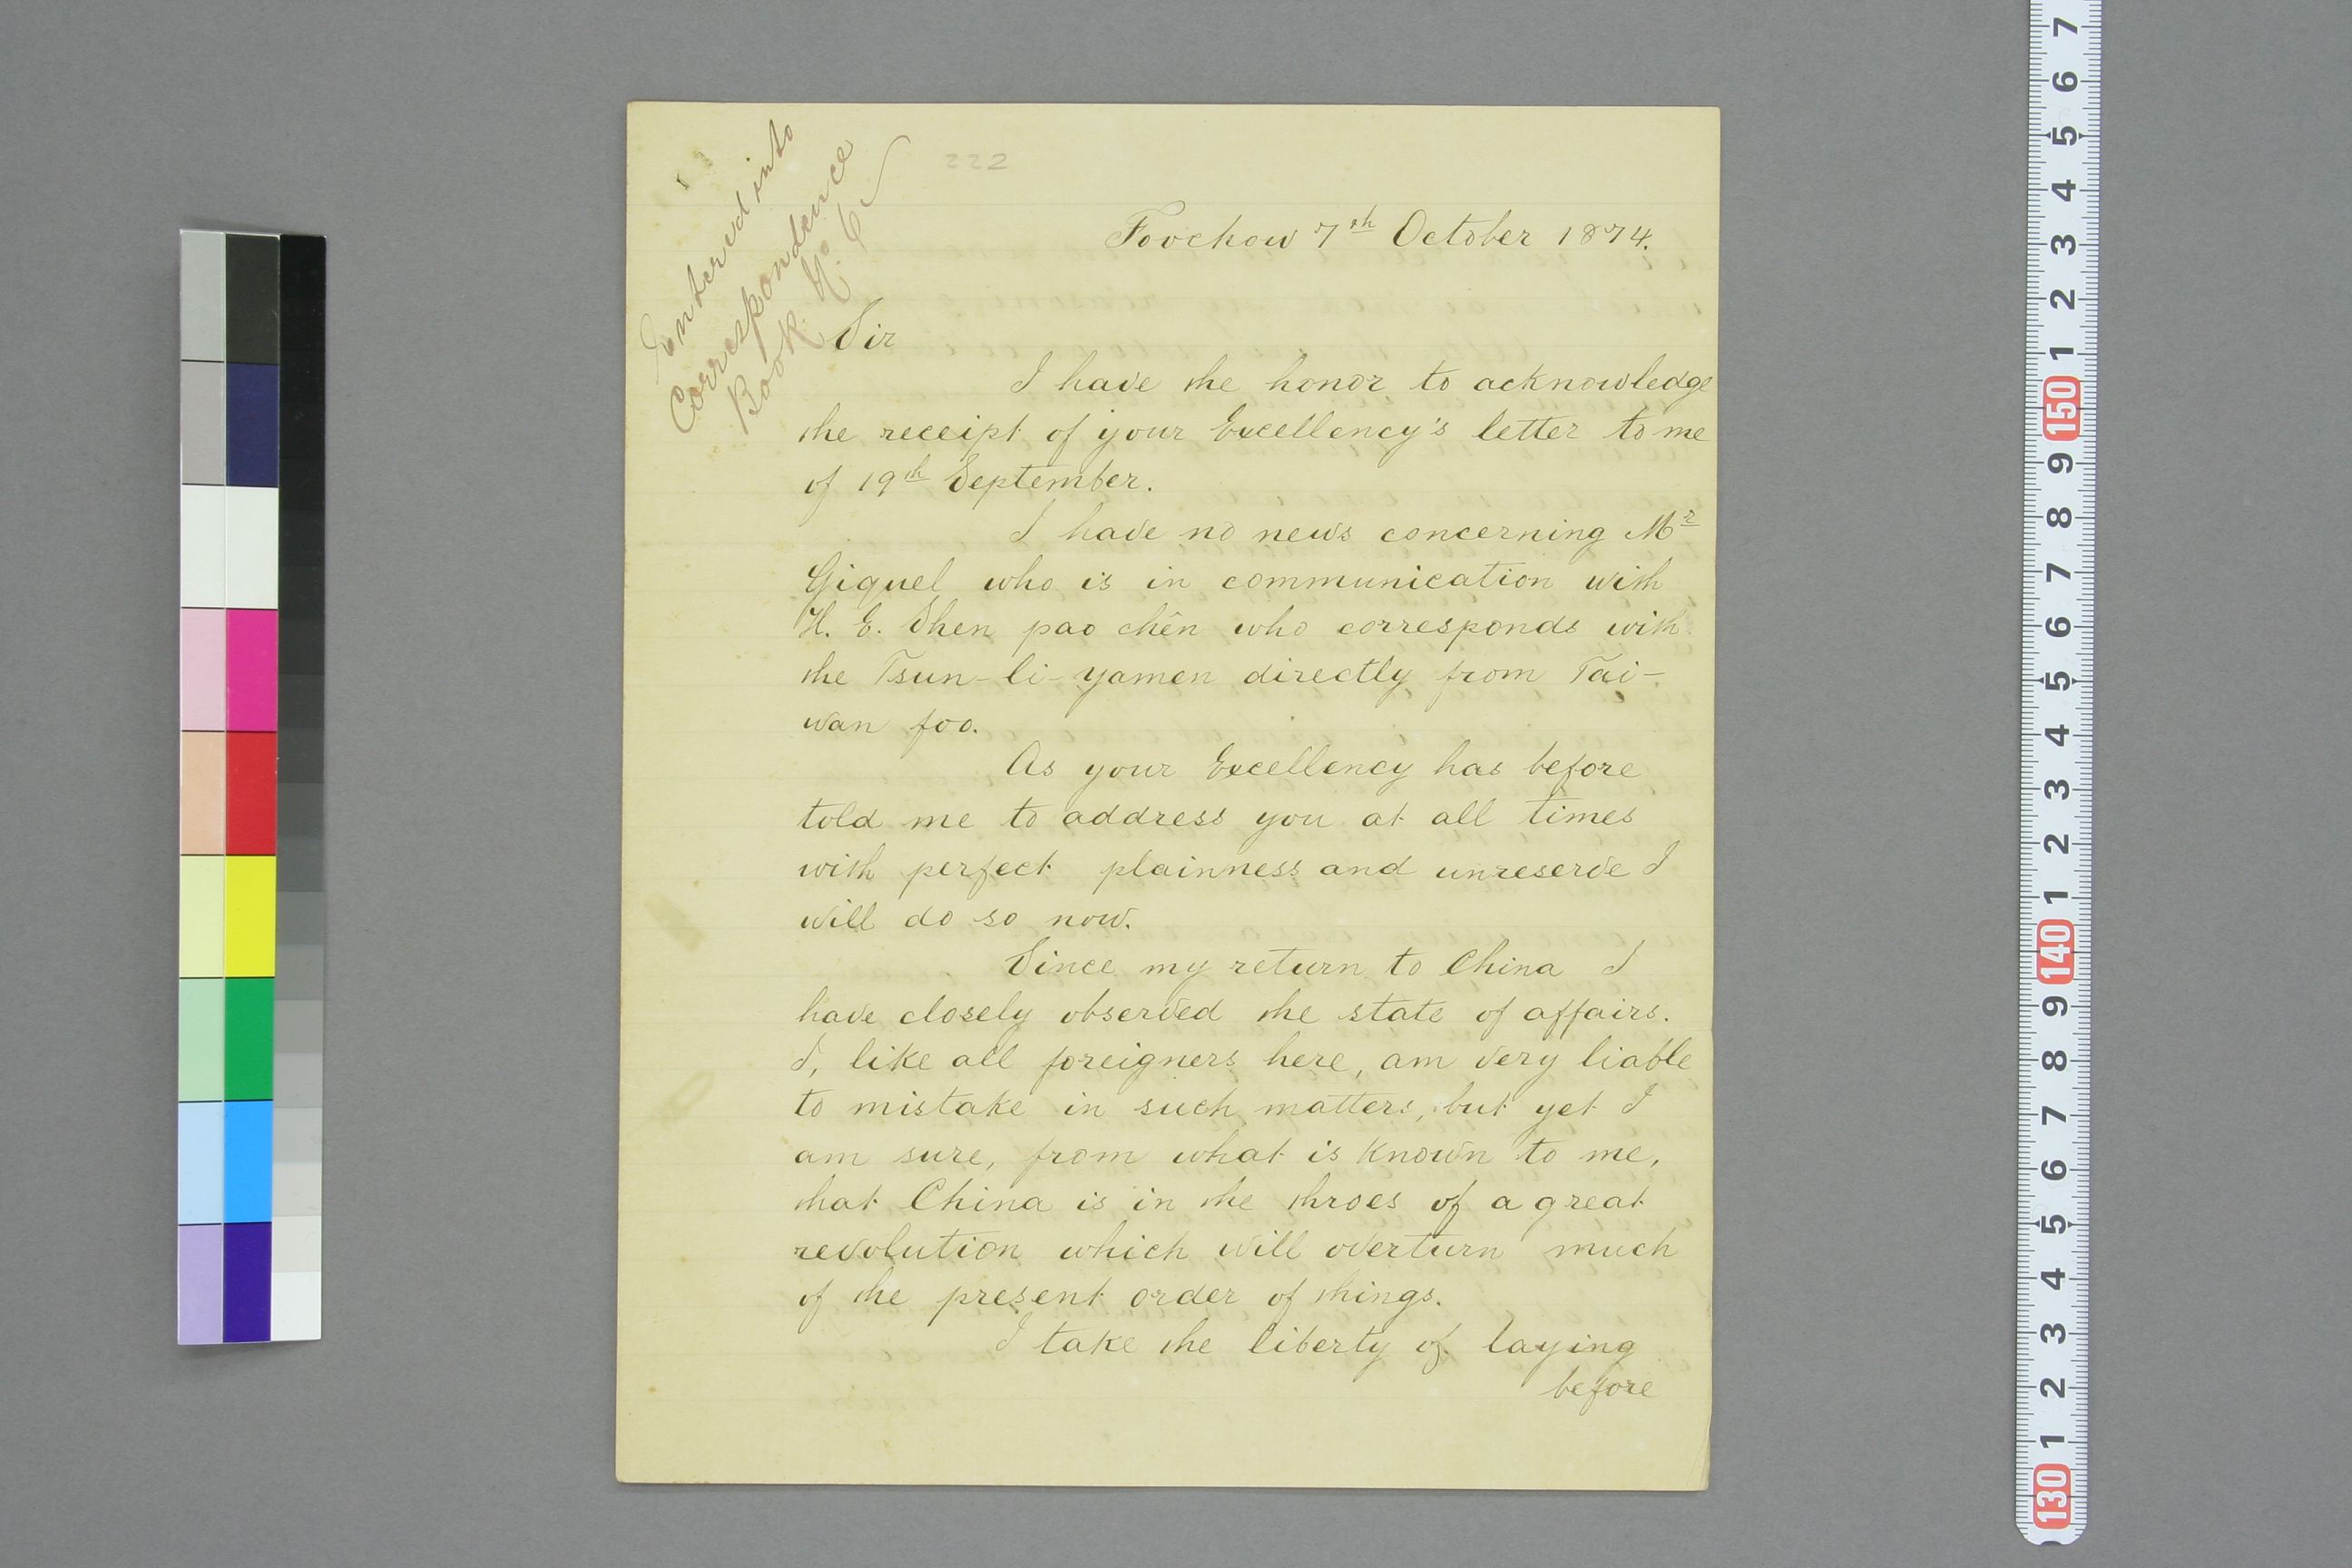 Entered into
Correspondence
Book. No. 6
222
Foochow 7th October 1874.
Sir
I have the honor to acknowledge
the receipt of your Excellency's letter to me
of 19th September.
I have no news concerning Mr
Giquel who is in communication with
H. E. Shen pao chên who corresponds with
the Tsun-li-yamen directly from Tai-
wan foo.
As your Excellency has before
told me to address you at all times
with perfect plainness and unreserve I
will do so now.
Since my return to China I
have closely observed the state of affairs.
I, like all foreigners here, am very liable
to mistake in such matters, but yet I
am sure, from what is known to me,
that China is in the throes of a great
revolution which will overturn much
of the present order of things.
I take the liberty of laying
before
7
6
5
4
3
2
1
150
9
8
7
6
5
4
3
2
1
140
9
8
7
6
5
4
3
2
1
130